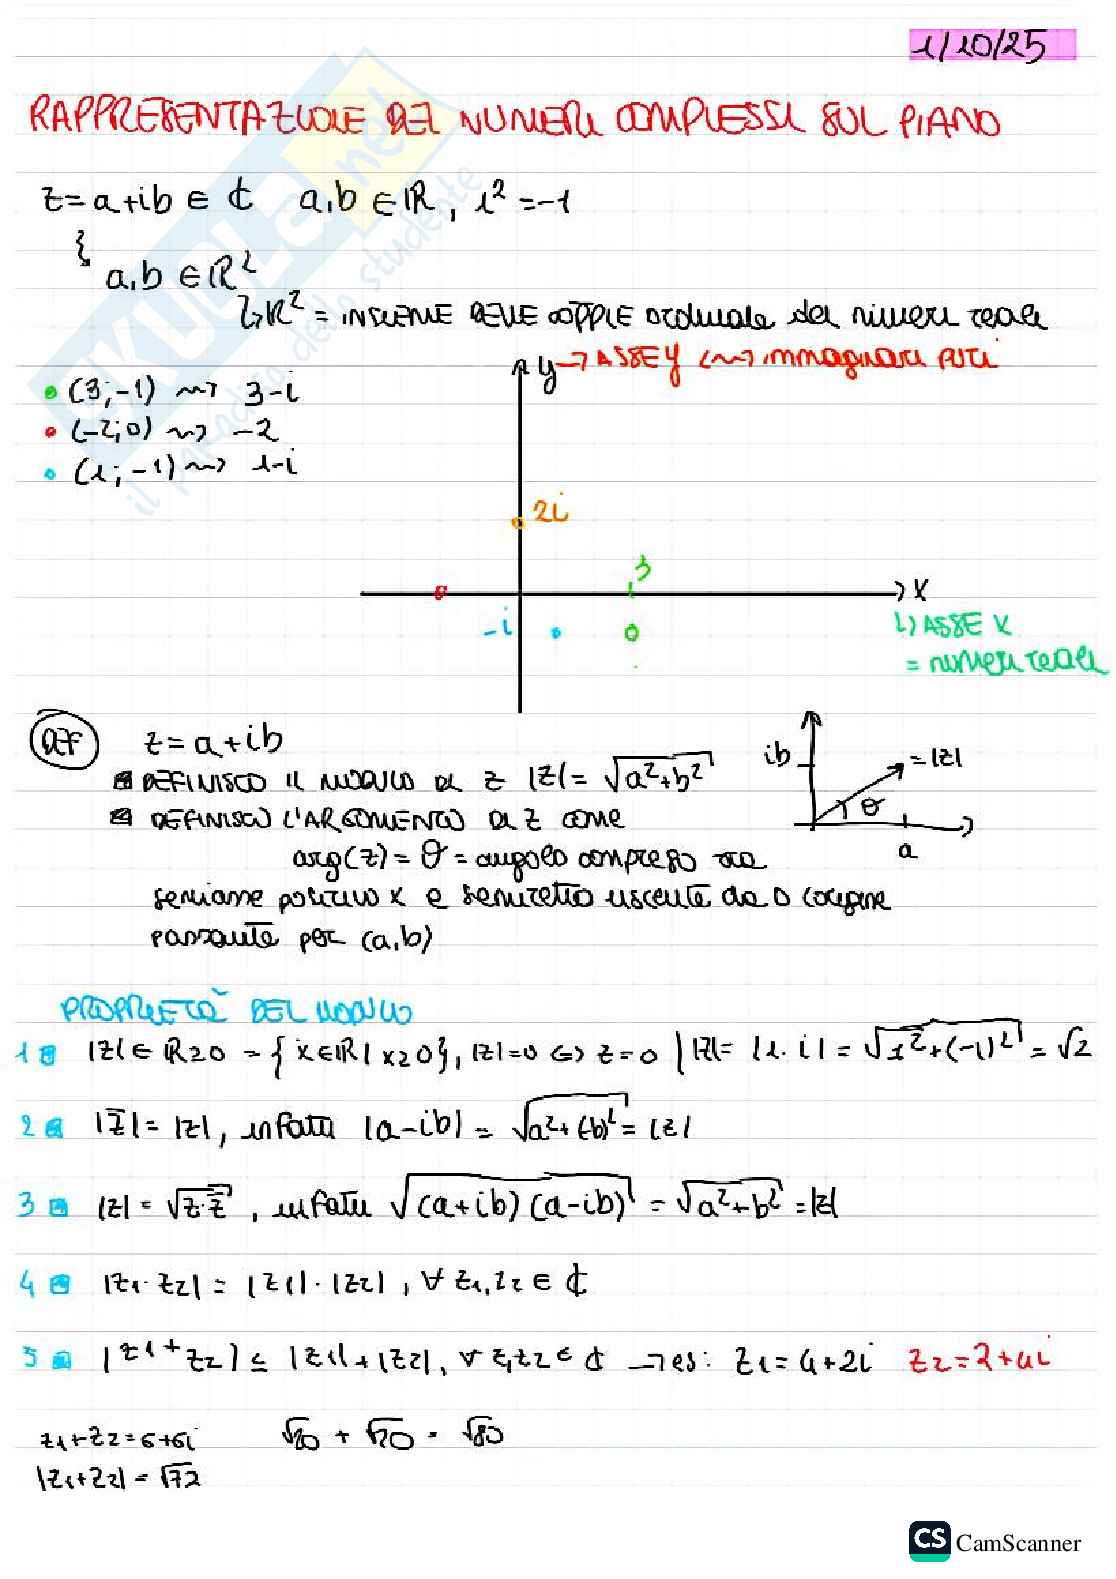 1/10/25
RAPPRESENTAZIONE DEI NUMERI COMPLESSI SUL PIANO
z=a+ib ∈ ℂ a,b ∈ ℝ, i²=-1
a,b ∈ ℝ²
↳ ℝ² = INSIEME DELLE COPPIE ordinate dei numeri reali
y → ASSE y ⟿ immaginari puri
(3;-1) ⟿ 3-i
(-2;0) ⟿ -2
(1;-1) ⟿ 1-i
2i
3
x
-i
↳ ASSE x
= numeri reali
DEF z=a+ib
DEFINISCO IL MODULO di z |z|= √a²+b²
ib =|z|
θ
a
DEFINISCO L'ARGOMENTO di z come
arg(z)=θ= angolo compreso tra
semiasse positivo x e semiretta uscente da O origine
passante per (a,b)
PROPRIETÀ DEL MODULO
1 |z| ∈ ℝ≥0 = {x∈ℝ | x≥0}, |z|=0 ⇔ z=0 | |z|= |1-i| = √1²+(-1)² = √2
2 |z̄|=|z|, infatti |a-ib| = √a²+(-b)² = |z|
3 |z|=√z·z̄, infatti √(a+ib)(a-ib) = √a²+b² =|z|
4 |z1·z2| = |z1|·|z2|, ∀ z1,z2 ∈ ℂ
5 |z1+z2| ≤ |z1|+|z2|, ∀ z1,z2 ∈ ℂ → es: z1=4+2i z2=2+4i
z1+z2=6+6i √20 + √20 = √80
|z1+z2| = √72
CS CamScanner
SKUOLA.net
il paradiso dello studente